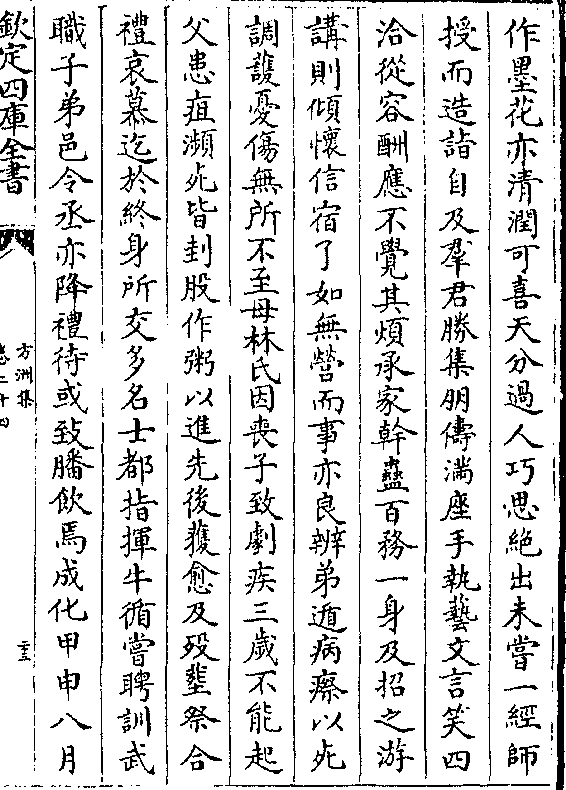 作墨花亦清潤可喜天分過人巧思絶出未嘗一經師
授而造詣自及羣君勝集朋儔滿座手執藝文言笑四
洽從容酬應不覺其煩承家幹蠱百務一身及招之游
講則傾懷信宿了如無營而事亦良辦弟遁病瘵以死
調護憂傷無所不至母林氏因喪子致劇疾三歲不能起
父患疽瀕死皆刲股作粥以進先後獲愈及殁塟祭合
禮哀慕迄於終身所交多名士都指揮牛循嘗聘訓武
職子弟邑令丞亦降禮待或致膰飲焉成化甲申八月
欽定四庫全書
方洲集
卷二十四